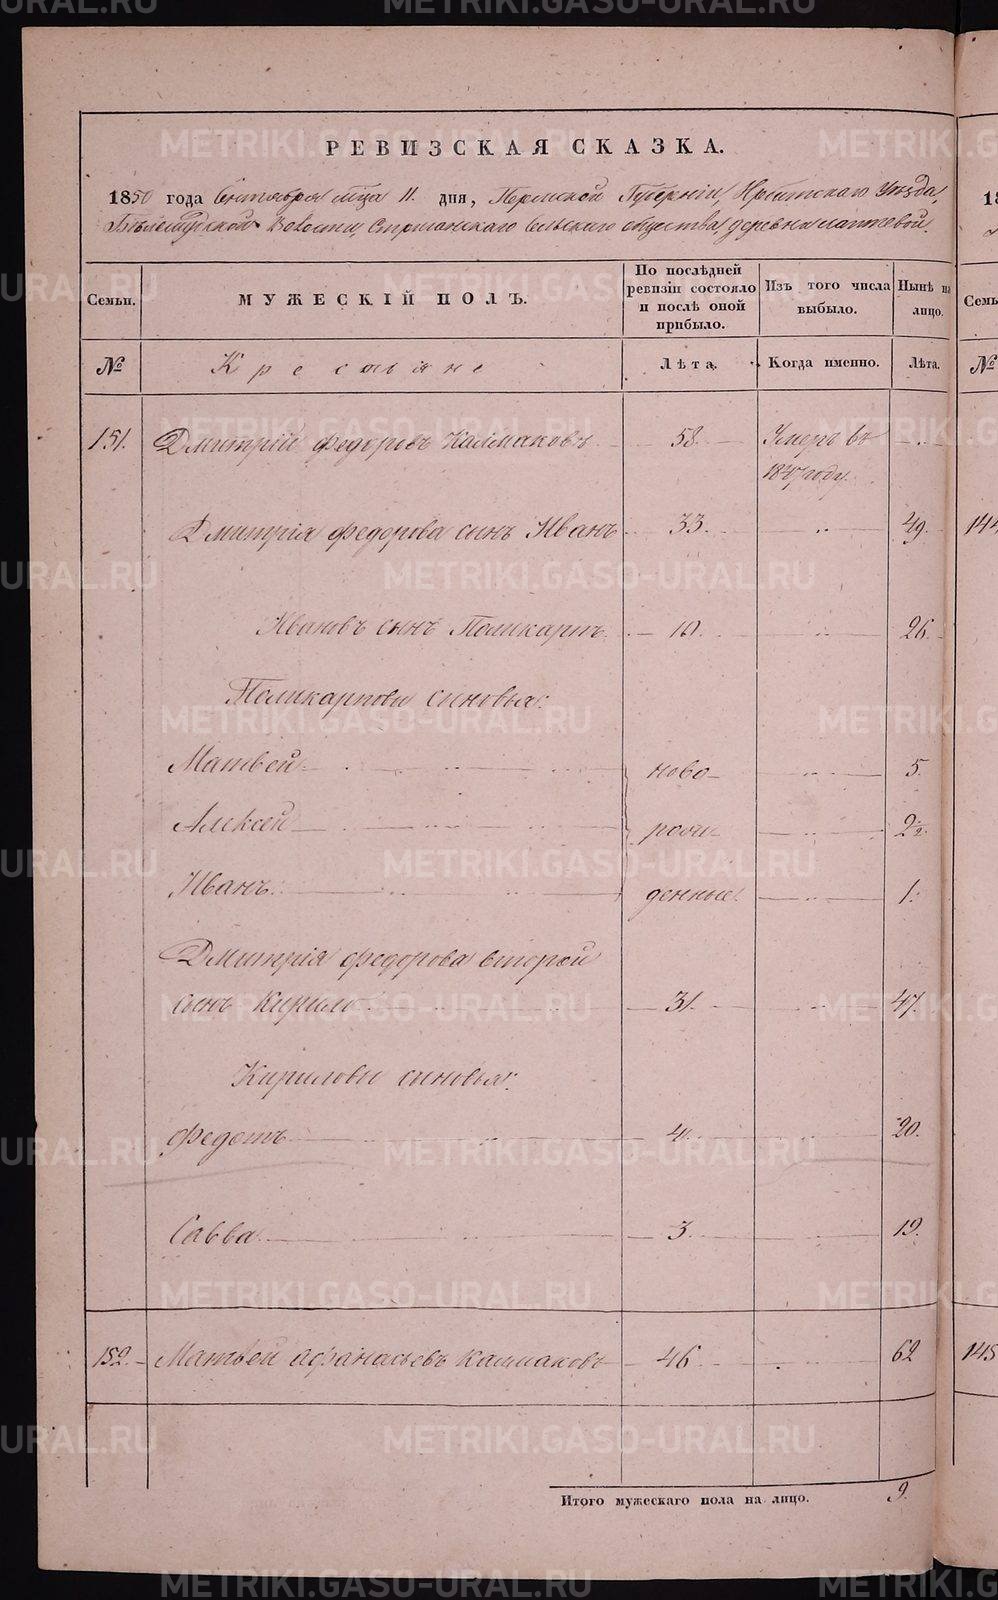 РЕВИЗСКАЯ СКАЗКА.
1850 года Сентября м̃ца 11. дня, Пермской Губерніи, Ирбитскаго Уѣзда,
Бѣлослудской Волости, Стриганскаго Сельскаго общества деревни лаптевой.
Семьи.
МУЖЕСКІЙ ПОЛЪ.
По послѣдней ревизіи состояло и послѣ оной прибыло.
Изъ того числа выбыло.
Нынѣ на лицо.
№
Крестьяне
Лѣта.
Когда именно.
Лѣта.
151. Дмитрій федоровъ Калмаковъ 58. Умеръ въ
1847 году.
Дмитрія федорова сынъ Иванъ 33. 49.
Ивановъ сынъ Поликарпъ 10. 26.
Поликарповы сыновья:
Матвей ново 5.
Алексей рож- 2½.
Иванъ: денные. 1.
Дмитрія федорова второй
сынъ Кирило 31. 47.
Кириловы сыновья:
федотъ 4. 20.
Савва 3. 19.
152. Матвей афанасьевъ калмаковъ 46 62
Итого мужескаго пола на лицо. 9.
18
Семь
№
144
145
METRIKI.GASO-URAL.RU